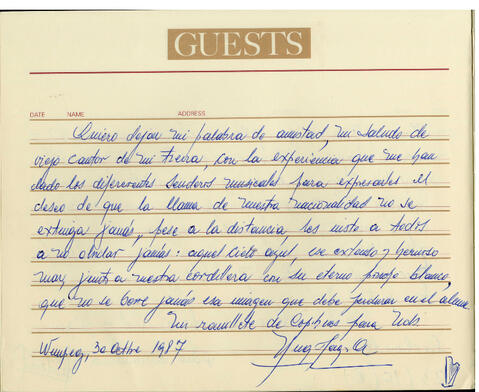 GUESTS
DATE NAME ADDRESS
Quiero dejar mi palabra de amistad, un saludo de
viejo cantor de mi tierra, con la experiencia que me han
dado los diferentes senderos musicales para expresarles el
deseo de que la llama de nuestra nacionalidad no se
extinga jamás, pese a la distancia, los insto a todos
a no olvidar jamás: aquel cielo azul, ese extenso y hermoso
mar, junto a nuestra cordillera con su eterno poncho blanco,
que no se borre jamás esa imagen que debe perdurar en el alma.
Un ramillete de Copihues para Uds.
Winipeg, 30 Octbre 1987